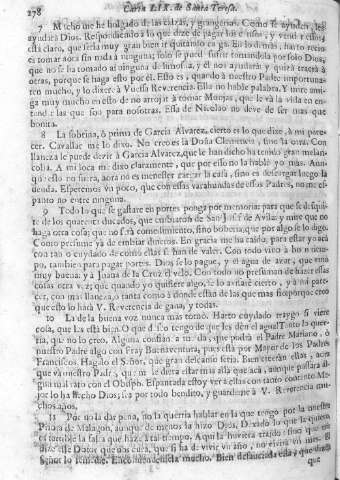 278 Carta LIX. de Santa Teresa.
7 Mucho me he holgado de las calzas, y grangerias. Como se ayuden, les
ayudará Dios. Respondiendo à lo que dize de pagar los censos, y vender essos,
está claro, que seria muy gran bien ir quitando carga. En lo demás, harto recio
es tomar aora sin nada à ninguna; solo se puede sufrir tomandola por solo Dios,
que no se ha tomado ai ninguna de limosna, y èl nos ayudará y quizá traerá à
otras, porque se haga esto por èl. Esto es, quando à nuestro Padre importunas-
ren mucho, y lo dixere à Vuessa Reverencia. Ella no hable palabra. Y mire ami-
ga muy mucho en esto de no arrojar à tomar Monjas, que le vá la vida en en-
tender las que son para nosotras. Essa de Nicolao no deve de ser mas que
bonita.
8 La sobrina, ò prima de Garcia Alvarez, cierto es lo que dixe, à mi pare-
cer. Cavallar me lo dixo. No creo es la Doña Clemencia, sino la otra. Con
llaneza le puede dezir à Garcia Alvarez, que le han dicho ha tenido gran melan-
colia. A mi loca me dixo claramente, que por esso no la hablè yo mas. Aun-
que esso no fuera, aora no es menester cargar la casa, sino es descargar luego la
deuda. Esperemos un poco, que con essas varahundas de essos Padres, no me es-
panto no entre ninguna.
9 Todo lo que se gastare en portes ponga por memoria; para que se desqui-
te de los quarenta ducados, que embiaron de San Josef de Avila: y mire que no
haga otra cosa; que no será comedimiento, sino boberia, que por algo se lo digo.
Como presume yá de embiar dineros. En gracia me ha caido, para estar yo acá
con tan o cuydado de como ellas se han de valer. Con todo vino à bu n tiem-
po, tambien para pagar portes. Dios se lo pague, y el agua de azar, que vino
muy buena: y à Juana de la Cruz el velo. Con todo no presuman de hazer essas
cosas otra vez; que quando yo quisiere algo, se lo avisarè cierto, y à mi pare-
cer, con mas llaneza, o tanta como à donde estan de las que mas fio; porque creo
que esso lo hará V. Reverencia de gana, y todas.
10 La de la buena voz nunca mas tornò. Harto cuydado traygo si viere
cosa, que las està bien. O que deseo tengo de que les dèn el agua! Tanto lo que-
ria, que no lo creo. Alguna confian a me dá, que podrá el Padre Mariano, ò
nuestro Padre algo con Fray Buenaventura, pues està por Mayor de los Padres
Franciscos. Hagalo el Señor, que gran descanso seria. Bien creerán ellas, aora
que vá nuestro Padre, que me le diera estar mas allá que acá, aunque passara al-
gun mal rato con el Obispo. Espantada estoy ver à ellas con tanto contento. Me-
jor lo ha hecho Dios; sea por todo bendito, y guardeme à V. Reverencia mu-
chos años.
11 Por no la dar pena, no la querria hablar en la que tengo por la nuestra
Priora de Malagon, aunque de menos la hizo Dios. Dexado lo que la quiero,
es terrible la falta que haze à tal tiempo. Aqui la huviera traido; sino que me
dize este Dotor que nos cura, que si alli ha de vivir un año, no vivirá un mes. El
Señor lo remedie. Encomiendenmela mucho. Bien desauciada està, y que dizen
que